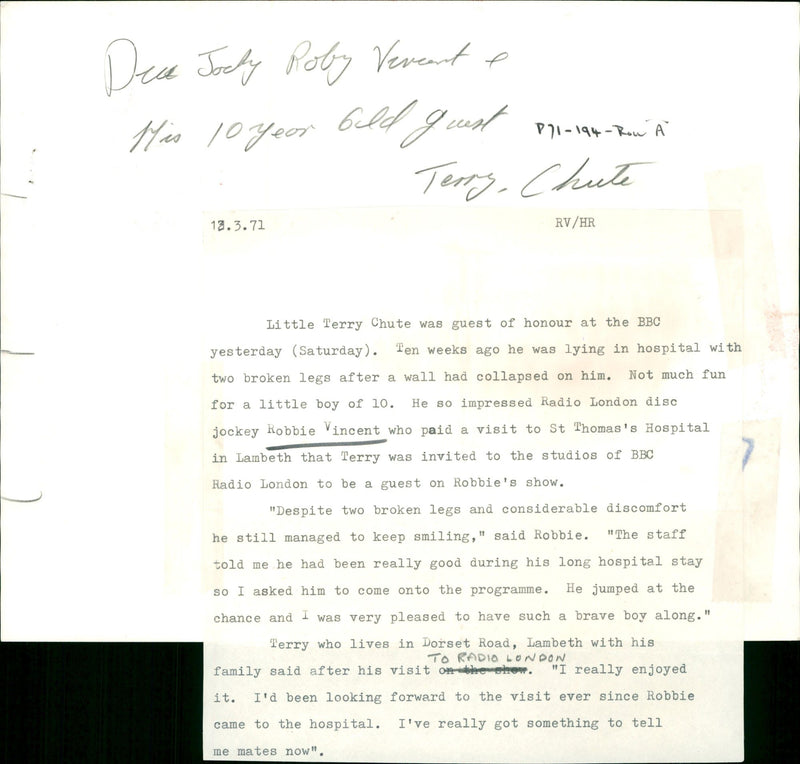 Disc Jocky Roby Vincent &
His 10 Year Old guest
P71-194-Row "A"
Terry, Chute
13.3.71 RV/HR
Little Terry Chute was guest of honour at the BBC
yesterday (Saturday). Ten weeks ago he was lying in hospital with
two broken legs after a wall had collapsed on him. Not much fun
for a little boy of 10. He so impressed Radio London disc
jockey Robbie Vincent who paid a visit to St Thomas's Hospital
in Lambeth that Terry was invited to the studios of BBC
Radio London to be a guest on Robbie's show.
"Despite two broken legs and considerable discomfort
he still managed to keep smiling," said Robbie. "The staff
told me he had been really good during his long hospital stay
so I asked him to come onto the programme. He jumped at the
chance and I was very pleased to have such a brave boy along."
Terry who lives in Dorset Road, Lambeth with his
TO RADIO LONDON
family said after his visit on the show. "I really enjoyed
it. I'd been looking forward to the visit ever since Robbie
came to the hospital. I've really got something to tell
me mates now".